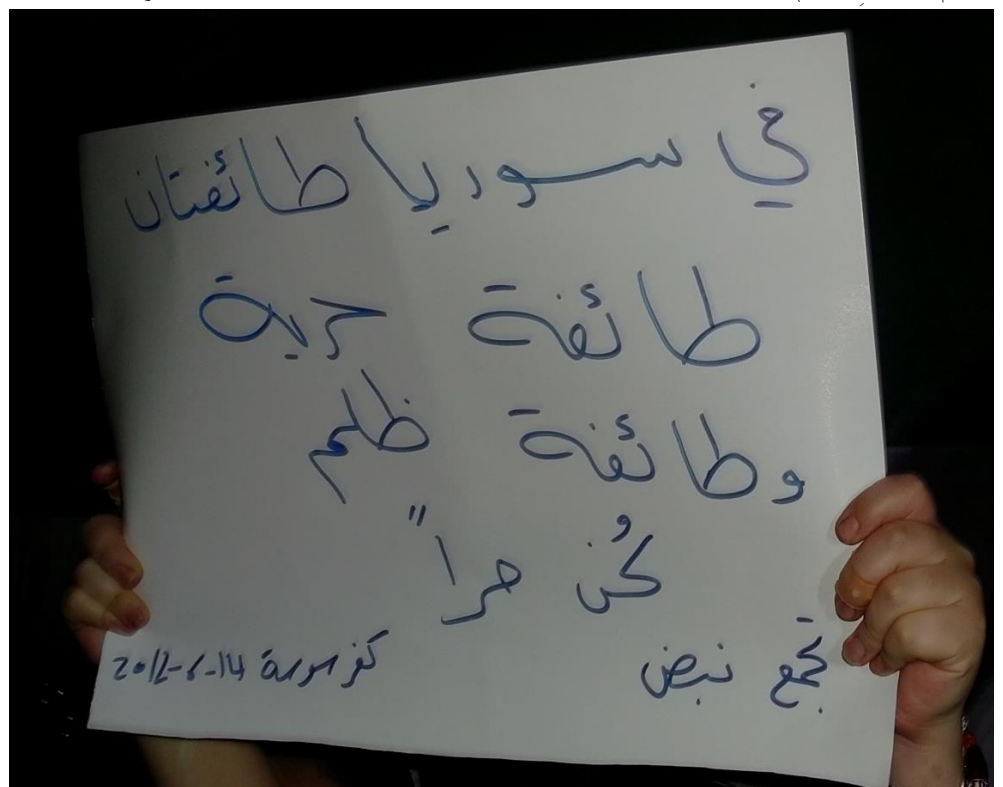 في سوريا طائفتان
طائفة حرية
وطائفة ظلم
كُن حراً
تجمع نبض
كفرسوسة 14-6-2012